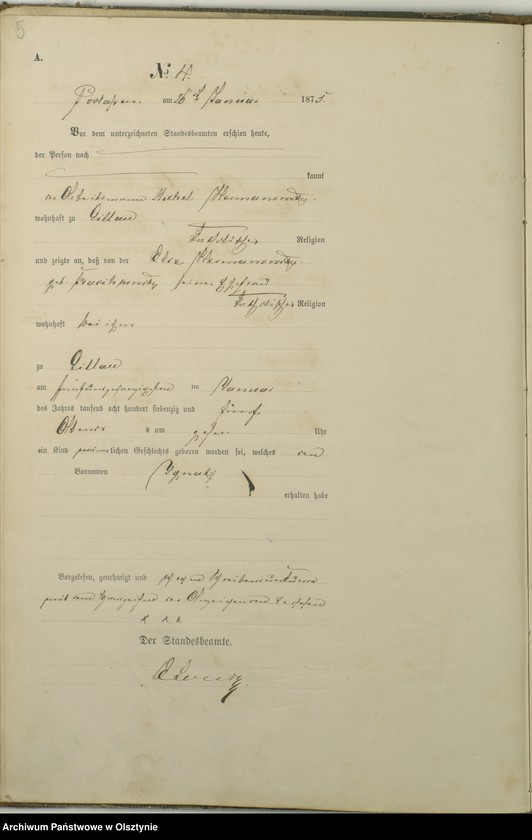 5
A.
No 4.
am 26 ten Januar 1875.
Vor dem unterzeichneten Standesbeamten erschien heute,
der Person nach
kannt
der Arbeitsmann Michael
wohnhaft zu Dittau
katholischer Religion
und zeigte an, daß von der
geb. seiner Ehefrau
katholischer Religion
wohnhaft bei ihm
zu Dittau
am fünfundzwanzigsten ten Januar
des Jahres tausend acht hundert siebenzig und fünf
Abends s um zehn Uhr
ein Kind männlichen Geschlechts geboren worden sei, welches den
Vornamen Ignatz
erhalten habe
Vorgelesen, genehmigt und wegen Schreibensunkunde
mit dem Handzeichen des Anzeigenden versehen
x x x
Der Standesbeamte.
Archiwum Państwowe w Olsztynie